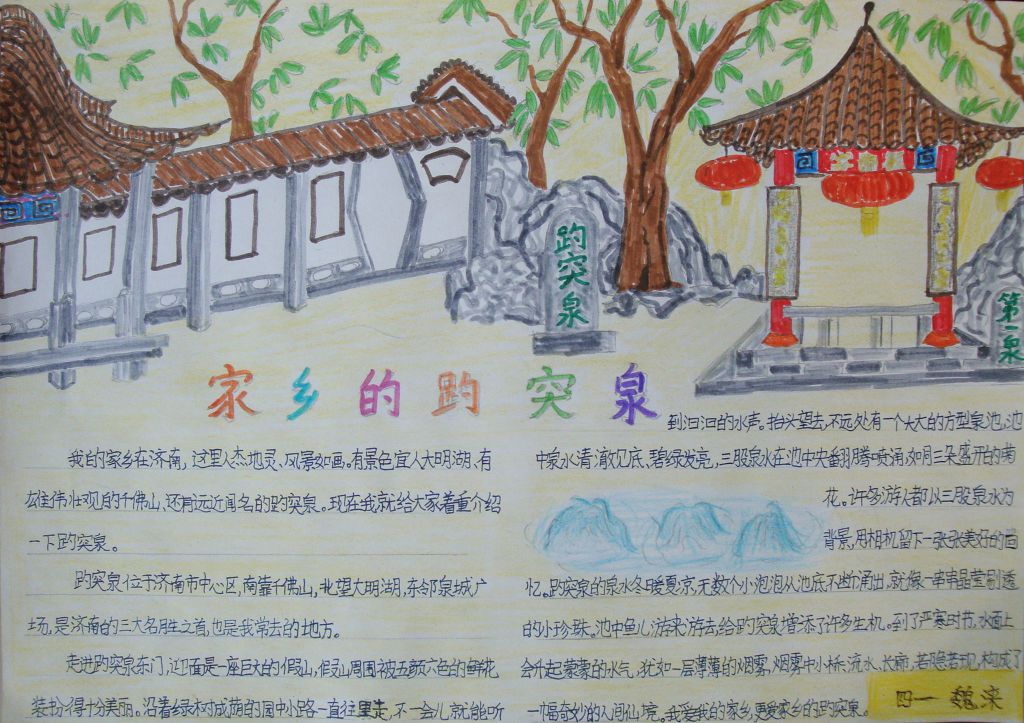 趵突泉
第一泉
家乡的趵突泉
我的家乡在济南，这里人杰地灵、风景如画。有景色宜人大明湖、有
雄伟壮观的千佛山、还有远近闻名的趵突泉。现在我就给大家着重介绍
一下趵突泉。
趵突泉位于济南市中心区，南靠千佛山，北望大明湖，东邻泉城广
场，是济南的三大名胜之首，也是我常去的地方。
走进趵突泉东门，迎面是一座巨大的假山，假山周围被五颜六色的鲜花
装扮得十分美丽。沿着绿树成荫的园中小路一直往里走，不一会儿就能听
到汩汩的水声。抬头望去，不远处有一个大大的方型泉池，池
中泉水清澈见底，碧绿发亮，三股泉水在池中央翻腾喷涌，如同三朵盛开的菊
花。许多游人都以三股泉水为
背景，用相机留下一张张美好的回
忆。趵突泉的泉水冬暖夏凉，无数个小泡泡从池底不断涌出，就像一串串晶莹剔透
的小珍珠。池中鱼儿游来游去，给趵突泉增添了许多生机。到了严寒时节，水面上
会升起蒙蒙的水气，犹如一层薄薄的烟雾，烟雾中小桥、流水、长廊，若隐若现，构成了
一幅奇妙的人间仙境。我爱我的家乡，更爱家乡的趵突泉。
四一 魏来